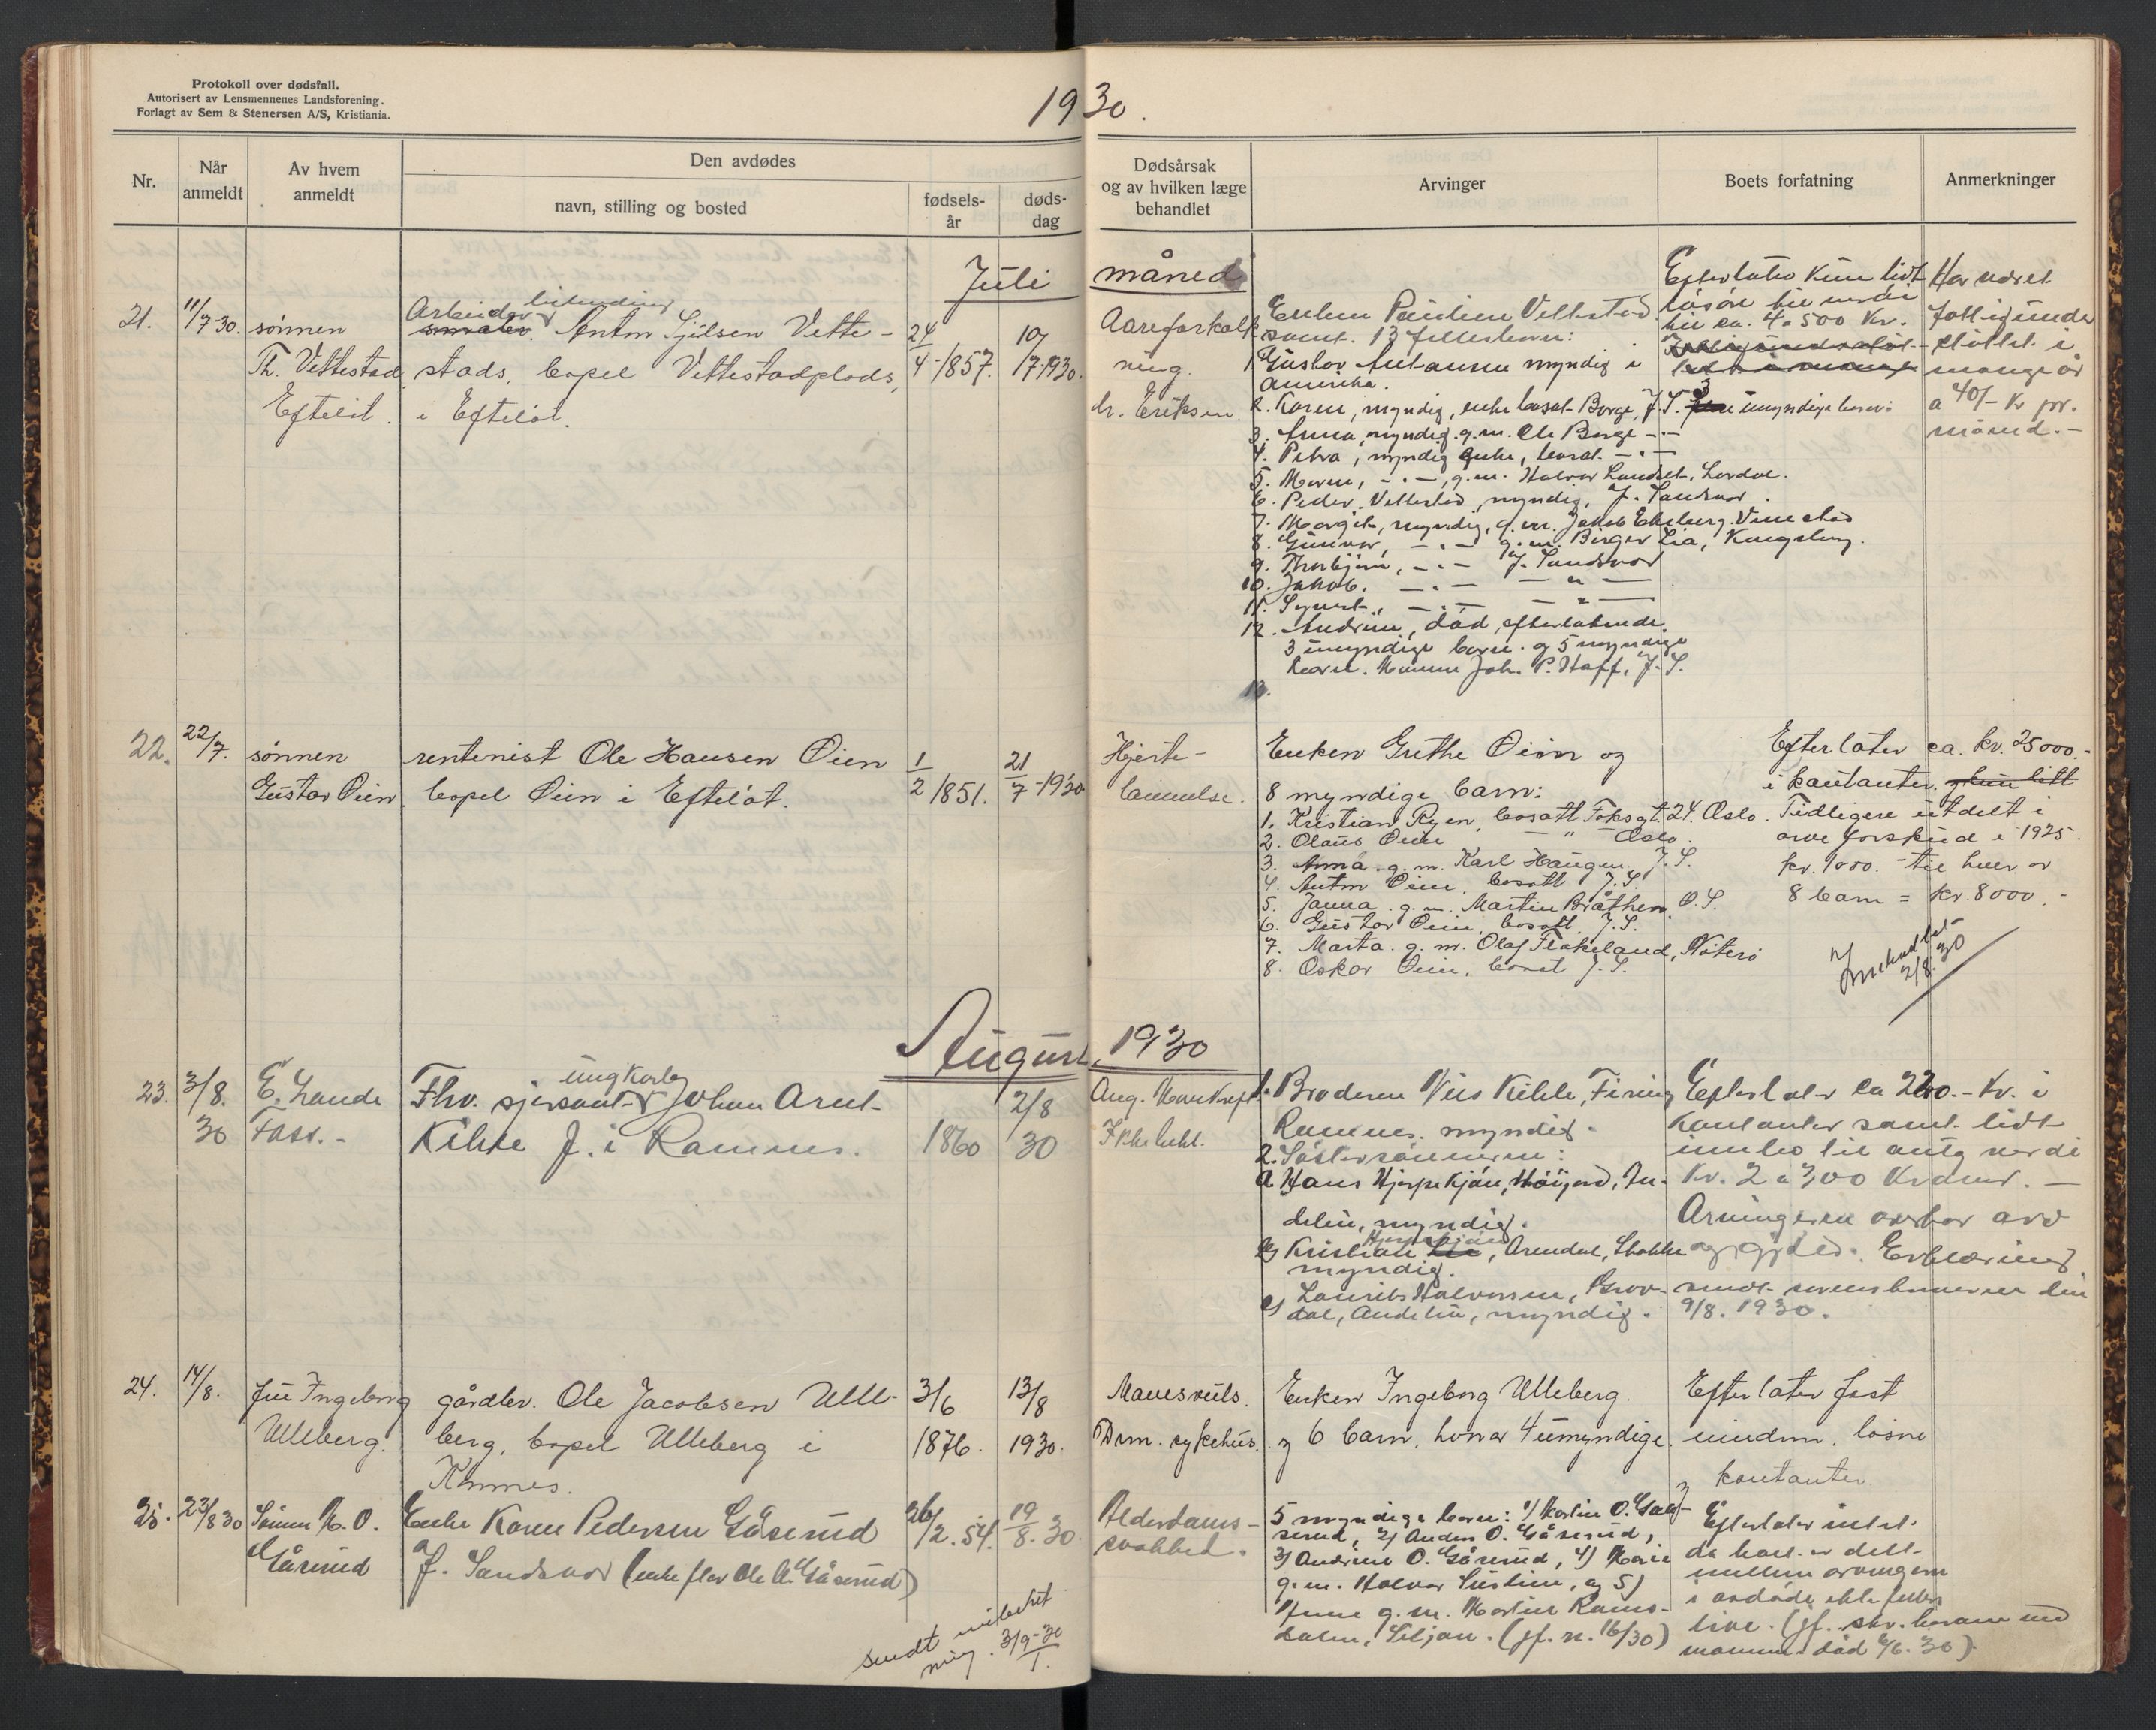 Protokoll over dødsfall.
Autorisert av Lensmennenes Landsforening.
Forlagt av Sem & Stenersen A/S, Kristiania.
1930.
Nr.
Når anmeldt
Av hvem anmeldt
Den avdødes
navn, stilling og bosted
fødsels-år
døds-dag
Dødsårsak og av hvilken læge behandlet
Arvinger
Boets forfatning
Anmerkninger
Juli måned
21.
11/7-30.
sønnen
Th. Vettestad
Eftelöt.
Arbeider
Anton Sjulsen Vette-
stads, bopel Vettestadplads,
i Eftelöt.
24/4-1857.
10/7-1930.
Aareforkalk-
ning.
dr. Eriksen.
Enken Pauline Vettestad
samt. 13 fellesbarn:
1 Gustav Antonsen myndig i
Amerika.
2. Karen, myndig, enke bosat Borge, J. S.
3. Anna, myndig. g.m. Ole Borge -"-
4. Petra, myndig enke, bosat. -"-
5. Maren, -"-, g.m. Halvor Landset, Lardal.
6. Peder Vettestad, myndig, J. Sandsvær.
7. Margit, myndig, g.m. Jakob Ekeberg.
8. Gunvor, -"- g.m. Birger Lia, Kongsberg.
9. Thorbjørn, -"- J. Sandsvær
10. Jakob. -"- -"-
11. -"- -"-
12. Andrine, död, efterlatende
3 umyndige barn. og 5 myndige
barn. Joh. P. Staff, J. S.
13.
Efterlater kun lidt
løsøre til verdi
til ca. 4 a 500 Kr.
3 umyndige barn:
Har været
fattigunder
støttet i
mange år
a 40/- Kr pr.
måned.-
22.
22/7.
sønnen
Gustav Øien.
rentenist Ole Hansen Øien
bopel Øien i Eftelöt.
1/2 1851.
21/7-1930
Hjerte-
lammelse.
Enken Grethe Øien og
8 myndige barn:
1. Kristian Ryen, bosatt Foksgt. 24. Oslo.
2. Olaus Øien -"- Oslo.
3. Anna. g.m. Karl Haugen. J. S.
4. Anton Øien, bosatt J. S.
5. Janna. g.m. Martin Bråthen, O. S.
6. Gustav Øien, bosatt. J. S.
7. Marta. g.m. Olaf Flakeland, Nøterø
8. Oskar Øien, bosat J. S.
Efterlater ca. kr. 25000.-
i kontanter.
Tidligere utdelt i
arveforskud i 1925.
kr. 1000.- til hver av
8 barn = kr. 8000.-
2/8.30
August 1930
23.
3/8.
30
E. Lande
Foss.-
ungkarl
Fhv. sjersant Johan Arnt.
Kihle J. i Ramnes.
1860
2/8
30
Ikke beh.
1. Broderen Nils Kihle, Firing
Ramnes. myndig.
2. Søstersønnene:
a. Hans Hjerpekjøn, Høijord, An-
debu, myndig.
b) Kristian Hjerpekjøn, Arendal, Stokke
myndig.
c) Laurits Halvorsen,
dal, Andebu, myndig.
Efterlater ca 220.- Kr. i
Kontanter samt lidt
innbo til antg verdi
Kr. 2 a 300 Kroner.-
Arvingerne overtar arv
og gjeld. Erklæring
sendt sorenskriveren den
9/8. 1930.
24.
14/8.
fru Ingeborg
Ulleberg.
gårdbr. Ole Jacobsen Ulle-
berg, bopel Ulleberg i
3/6
1876.
13/8
1930.
Mavesvuls.
Drm. sykehus.
Enken Ingeborg Ulleberg.
og 6 barn, hvorav 4 umyndige.
Efterlater fast
eiendom, løsøre
og kontanter.
25.
23/8 30
Sønnen M. O.
Gåserud
Enke Karen Pedersen Gåserud
J. Sandsvær (enke efter Ole A. Gåserud)
26/2.54.
19/8.30.
Alderdoms-
svakhed.
5 myndige barn: 1) Martin O. Gåse-
serud, 2) Anders O. Gåserud,
3) Andrine O. Gåserud, 4) Marie
g.m. Halvor og 5)
g.m. Martin Rams-
dalen, Siljan. (jf. nr. 16/30)
Efterlater intet.
da boet er delt
mellem arvingene
i avdøde ektefelles
live. (jf. skr.
mannen død 6/6. 30).
sendt
3/9-30